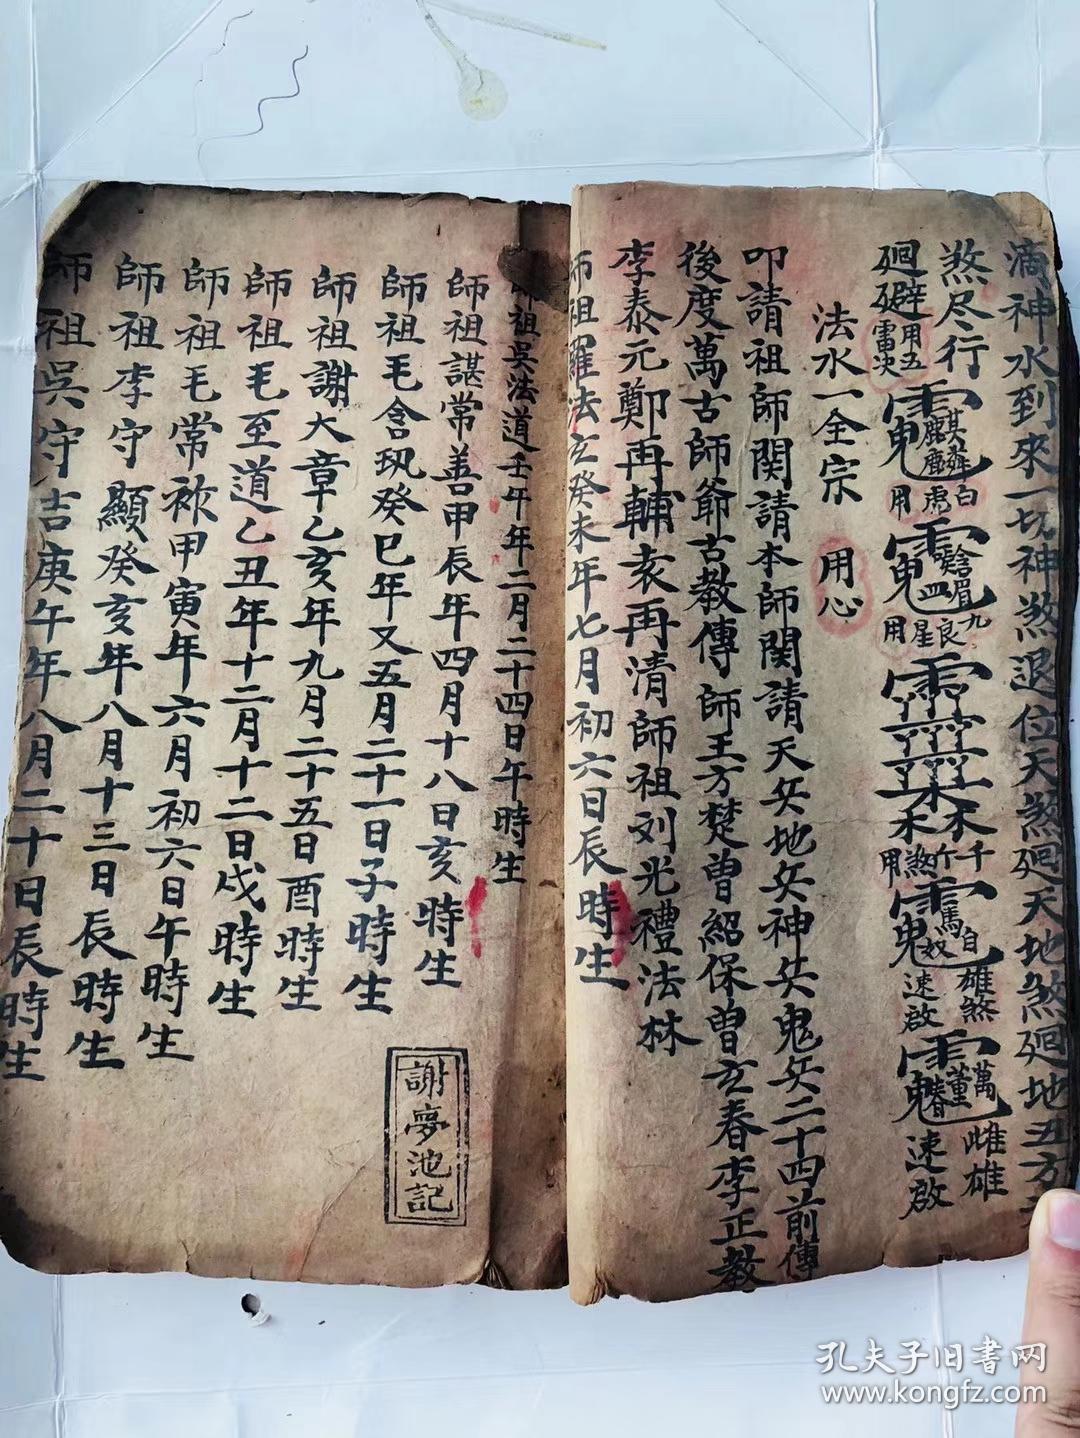 滴神水到來一切神煞退位天煞廻天地煞廻地五方
煞尽行
廻避
用五雷
麒麟
白虎
用
四
九良星
用
千斤煞
用
自
馬奴
雄煞
速啟
萬
董
雌雄
速啟
法水一全宗 用心
叩請祖師関請本師関請天兵地兵神兵鬼兵二十四前傳
後度萬古師爺古教傳師王方楚曾紹保曾玄春李正教
李泰元鄭再輔袁再清師祖刘光禮法林
師祖羅法玄癸未年七月初六日辰時生
師祖吳法道壬午年二月二十四日午時生
師祖諶常善甲辰年四月十八日亥時生
師祖毛含玑癸巳年又五月二十一日子時生
師祖謝大章乙亥年九月二十五日酉時生
師祖毛至道乙丑年十二月十二日戌時生
師祖毛常祚甲寅年六月初六日午時生
師祖李守顯癸亥年八月十三日辰時生
師祖吳守吉庚午年八月二十日辰時生
謝夢池記
孔夫子旧书网
www.kongfz.com